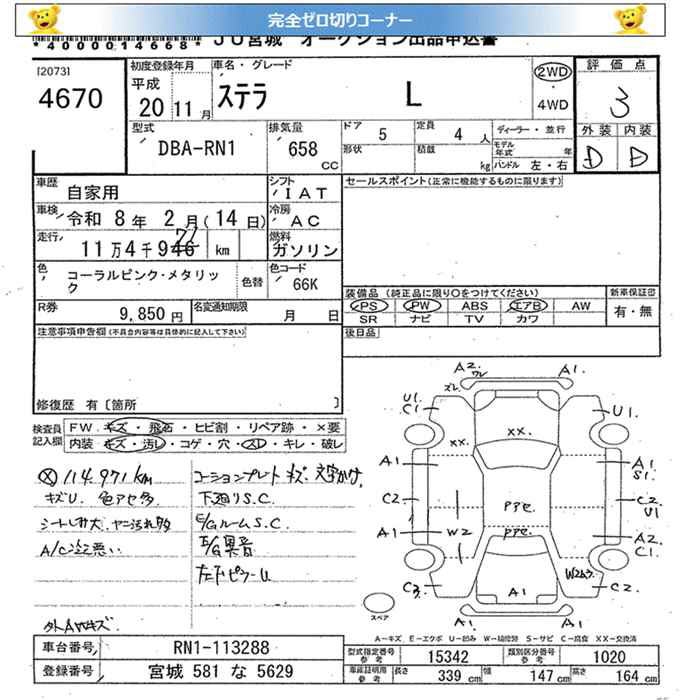 完全ゼロ切りコーナー
*40000014668* JU宮城 オークション出品申込書
[2073]
4670
初度登録年月
平成
20 11 月
車名・グレード
ステラ L
2WD
4WD
評価点
3
外装 内装
D D
型式
DBA-RN1
排気量
658 cc
ドア 5
定員 4 人
形状
積載 kg
ディーラー・並行
モデル年式 年
ハンドル 左・右
車歴 自家用
シフト IAT
車検 令和 8 年 2 月 (14 日)
冷房 AC
走行 11 万 4 千 946 71 km
燃料 ガソリン
色 コーラルピンク・メタリック
色替
色コード 66K
R券 9,850 円
名変通知期限 月 日
セールスポイント(正常に機能するものに限ります)
装備品(純正品に限り○をつけてください)
PS PW ABS エアB AW
SR ナビ TV カワ
新車保証書
有・無
後日品
注意事項申告欄(不具合内容等は具体的に記入して下さい)
修復歴 有〔箇所 〕
検査員記入欄
FW キズ・飛石・ヒビ割・リペア跡・×要
内装 キズ・汚レ・コゲ・穴・スレ・キレ・破レ
114,971km
キズU. 色アセ多
シートしみ大、ヤニ汚れ多
A/C冷え悪い
外AWキズ
コーションプレートキズ、文字かけ
下廻りS.C.
E/GルームS.C.
E/G異音
左下ピラーU
A2 ワレ
ズレ
A1
U1
C1
U1
XX.
XX.
A1
A1.
S1
C2
C2
U1
アアセ
アアセ
A1
W2
A2
C1
W2ムラ
C3
C2
A1
A1
A1
スペア
A－キズ E－エクボ U－凹み W－補修跡 S－サビ C－腐食 XX－交換済
車台番号 RN1-113288
登録番号 宮城 581 な 5629
型式指定番号 参考 15342
類別区分番号 参考 1020
車庫証明用 参考 長さ 339 cm 幅 147 cm 高さ 164 cm